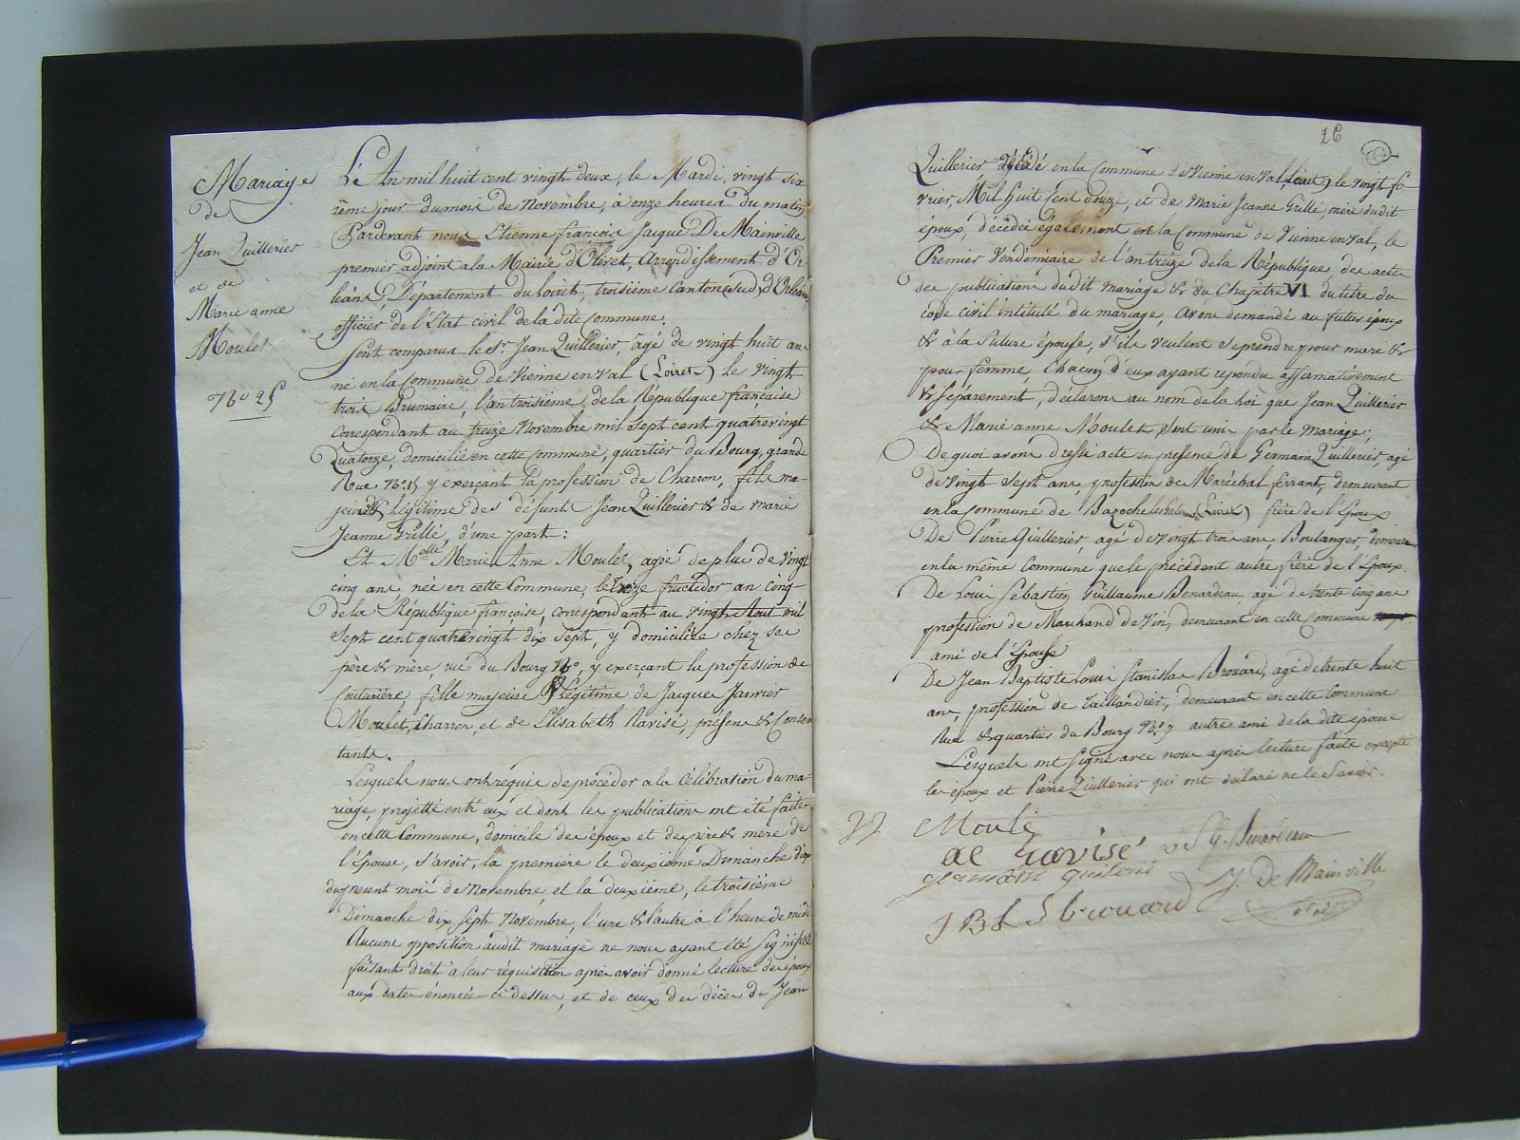 Mariage
de
Jean Quillerier
et de
Marie anne
Moulet
No 25
L'An mil huit cent vingt deux, le Mardi, vingt six
ième jour du mois de Novembre, à onze heures du matin,
Pardevant nous Etienne françois Jacque De Mainville
premier adjoint a la Mairie d'Olivet, Arrondissement d'Or
léans, Département du Loiret, troisième Canton (sud) d'Orléans
officier de l'Etat civil de la dite Commune.
Sont comparus le Sr. Jean Quillerier, âgé de vingt huit ans
né en la Commune de Vienne en val (Loiret) le vingt
trois Brumaire, l'an troisième de la République française
correspondant au treize Novembre mil sept cent quatrevingt
Quatorze, domicilié en cette Commune, quartier du Bourg, grande
Rue No. 15 y exerçant la profession de Charron, fils ma-
jeur & Légitime des défunts Jean Quillerier & de Marie
Jeanne Grillé, d'une part:
Et Melle Marie Anne Moulet, agée de plus de vingt
cinq ans, née en cette Commune, le fructidor an cinq
de la République françoise, correspondant au vingt Aout mil
Sept cent quatrevingt dix sept, y domiciliée chez ses
père & mère, rue du Bourg No. , y exerçant la profession de
Couturière, fille majeure & légitime de Jacques Janvier
Moulet, Charron, et de Elisabeth Ravisé, présens & Consen
tants.
Lesquels nous ont requis de procéder a la Célébration du ma-
riage, projetté entr'eux et dont les publications ont été faites
en cette Commune, domicile des époux et des père & mère de
l'épouse, s'avoir, la première le deuxième Dimanche dix
du présent mois de Novembre, et la deuxième, le troisième
Dimanche dix sept Novembre, l'une & l'autre à l'heure de midi
Aucune opposition audit mariage ne nous ayant été signifiée
faisant droit à leur réquisition après avoir donné lecture des époux
aux dates énoncées ci dessus, et de ceux des décès de Jean
26
Quillerier décédé en la Commune de Vienne en val, (Loiret) le vingt fé-
vrier, Mil Huit Cent douze, et de Marie Jeanne Grillé, mère dudit
époux, décédée également en la Commune de Vienne en val, le
Premier Vendémiaire de l'an treize de la République, des actes
des publications dudit mariage & du Chapitre VI du titre du
code civil intitulé du mariage, avons demandé au futur époux
& à la future épouse, s'ils veulent se prendre pour mari &
pour femme, chacun d'eux ayant répondu affirmativement
& séparément, déclarons au nom de la loi que Jean Quillerier
& Marie anne Moulet sont unis par le mariage;
De quoi avons dressé acte en présence de Germain Quillerier, agé
de vingt sept ans, profession de Maréchal ferrant, demeurant
en la commune de (Loiret) frère de l'époux
De Pierre Quillerier, agé de vingt trois ans, Boulanger, demeurant
en la même Commune que le précédent autre frère de l'Epoux.
De Louis Sébastien Guillaume Benardeau, agé de trente cinq ans
profession de Marchand de Vin, demeurant en cette Commune
ami de l'épouse
De Jean Baptiste Louis Stanislas Brouard, agé de trente huit
ans, profession de Taillandier, demeurant en cette Commune
Rue & quartier du Bourg No. 9 autre ami de la dite épouse
Lesquels ont signé avec nous après lecture faite excepté
les époux et Pierre Quillerier qui ont déclaré ne le savoir.
Moulé
de ravisé
S G. Benardeau
germain quilerié
J. De Mainville
J B L S brouard